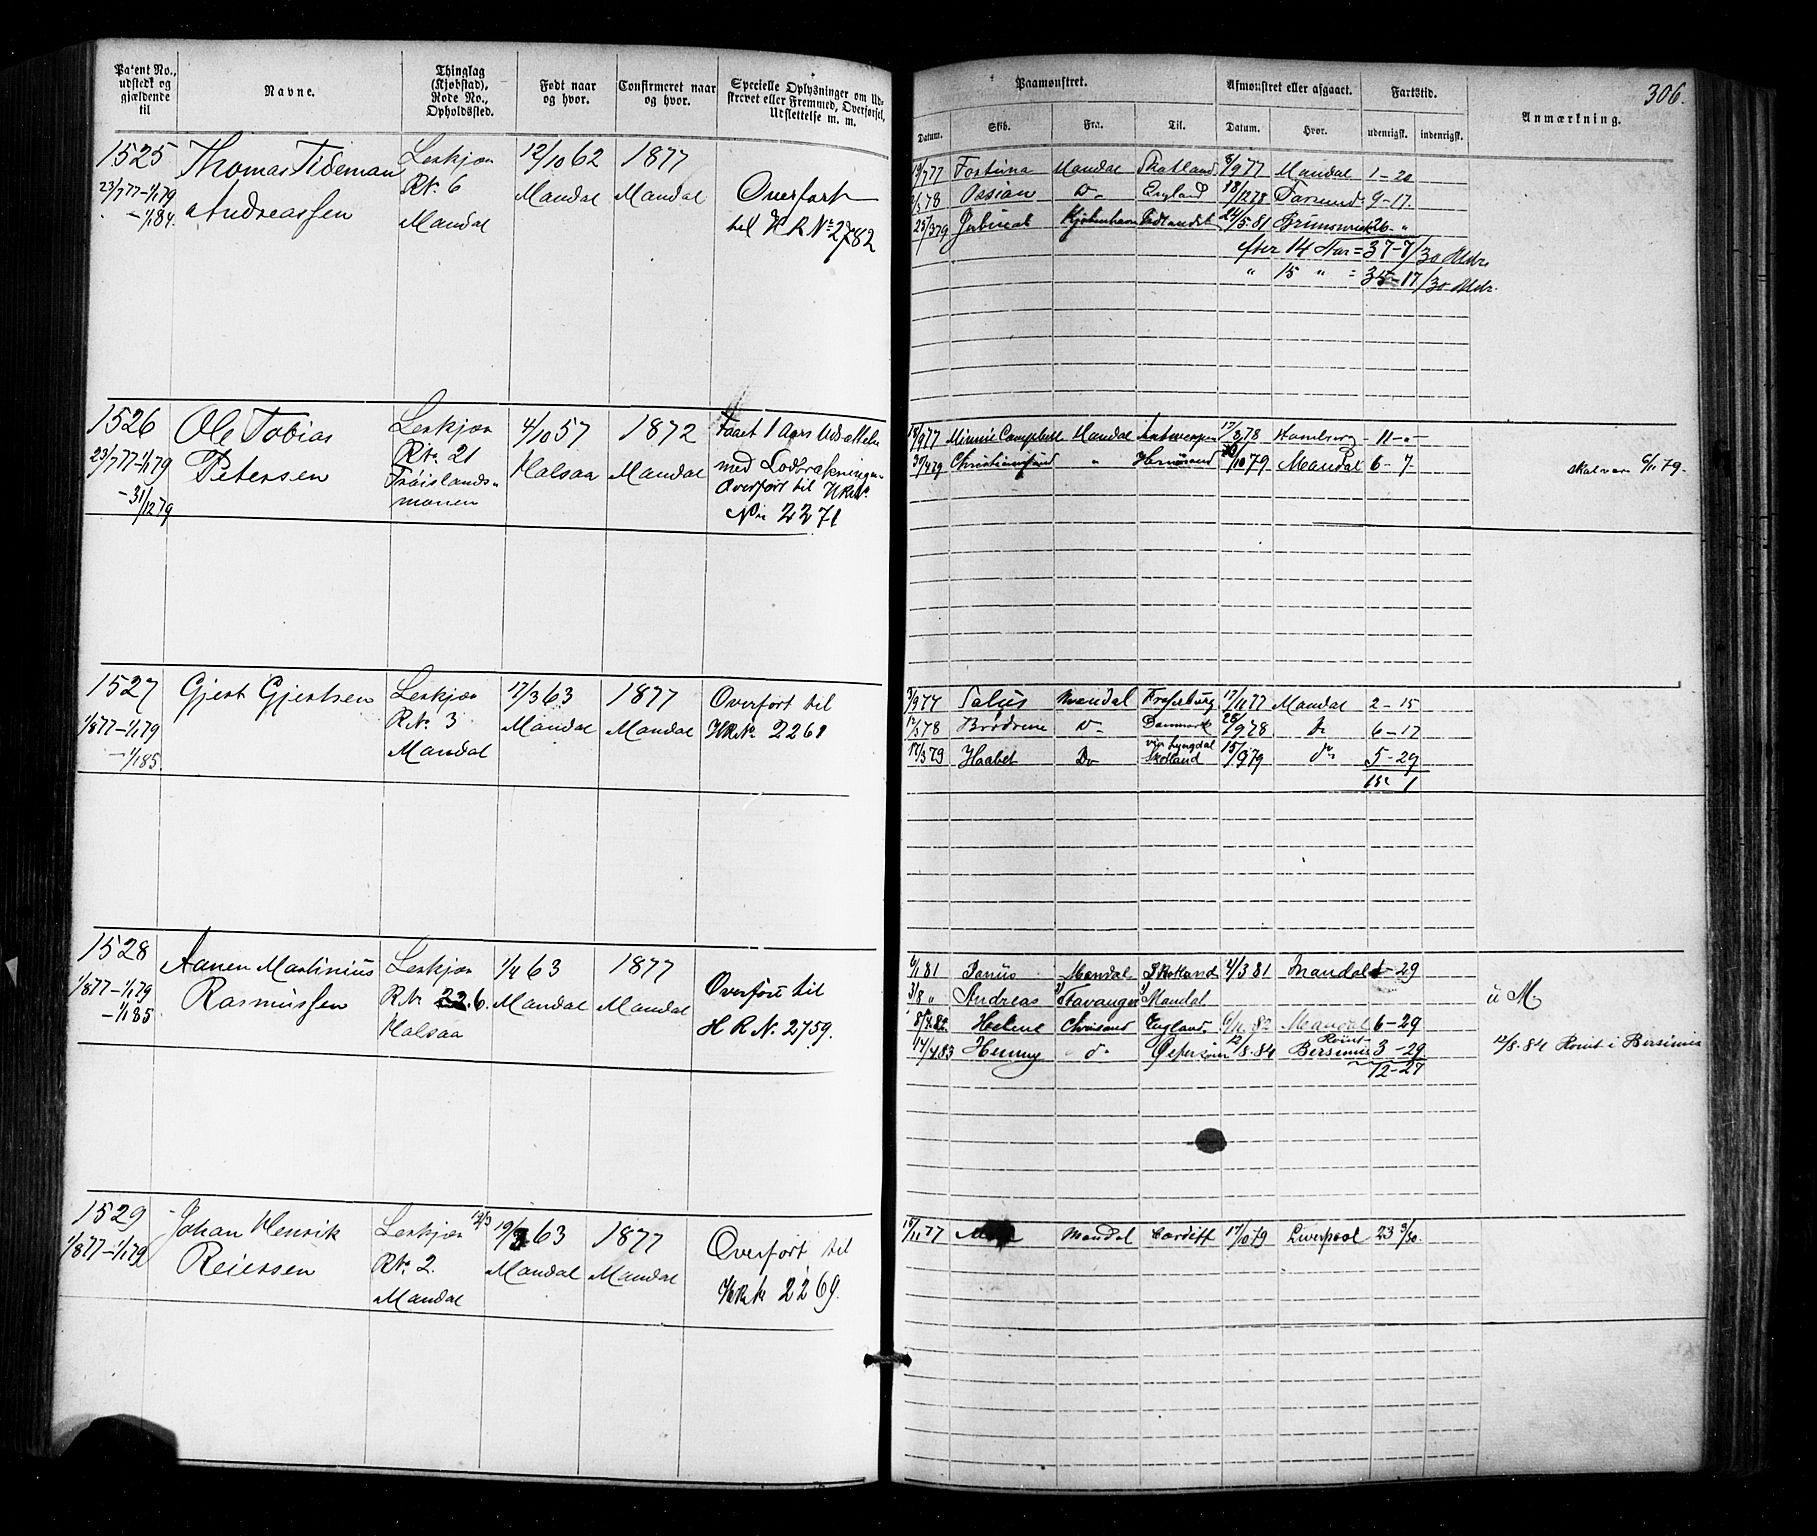 Patent No., udstedt og gjældende til
Navne.
Thinglag (Kjøbstad), Rode No., Opholdssted.
Født naar og hvor.
Confirmeret naar og hvor.
Specielle Oplysninger om Udskrevet eller Fremmed, Overførsel, Udslettelse m. m.
Paamønstret.
Afmønstret eller afgaaet.
Fartstid.
Anmærkning.
306.
Datum.
Skib.
Fra.
Til.
Datum.
Hvor.
udenrigsk.
indenrigsk.
1525
23/7 77 - 1/1 79
- 1/1 84.
Thomas Tideman
Andreassen
Leskjær
R No 6
Mandal
12/10 62
Mandal
1877
Mandal
Overført
til H R No 2782
Fortuna Mandal Skotland 8/9 77 Mandal 1 - 20
Ossian Do England 18/12 78 Farsund 9 - 17.
25/3 79 Kjøbenhavn 24/5 81 Brunswick 26 - "
efter 14 Aar = 37 - 7/30 Mdr.
" 15 " = 35 - 17/30 Mdr.
1526
23/7 77 - 1/1 79
- 31/12 79
Ole Tobias
Petersen
Leskjær
R No 21
Frøislands-
monen
4/10 57
Halsaa
1872
Mandal
Faaet 1 Aars Udsættelse
Overført til H R No
No 2271
9 77 Minnie Campbell Mandal Antwerpen 17/2 78 Hamburg 11 - "
30/4 79 Christianssund " Hernøsand /10 79 Mandal 6 - 7
6/11 79.
1527
1/8 77 - 1/1 79
- 1/1 85.
Gjert Gjertsen
Leskjær
R No 3
Mandal
17/3 63
Mandal
1877
Mandal
Overført til
H R No 2268
3/9 77 Mandal 17/11 77 Mandal 2 - 15
Brødrene Do Danmark 28/9 78 do 6 - 17
17/3 79 Haabet Do via Lyngdal Skotland 15/9 79 do 5 - 29
1
1528
1/8 77 - 1/1 79
- 1/1 85.
Aanen Martinius
Rasmussen
Leskjær
R No 22 6.
Halsaa
1/4 63
Mandal
1877
Mandal
Overført til
H R No 2759.
6/1 81 Mandal Skotland 4/3 81 Mandal 1 - 29
3/8 " Andreas Stavanger Mandal
u M
Helene Chrisand England 82 Mandal 6 - 29
17/4 83 Henny do 12/8 84 Bersimis 3 - 29
12/8 84 Rømt i Bersimis
12 - 27
1529
1/8 77 - 1/1 79
Johan Henrik
Reiersen
Leskjær
R No 2.
Mandal
12/3
19/3 63
Mandal
1877
Mandal
Overført til
2269.
15/11 77 Mandal Cardiff 17/10 79 Liverpool 23 3/30